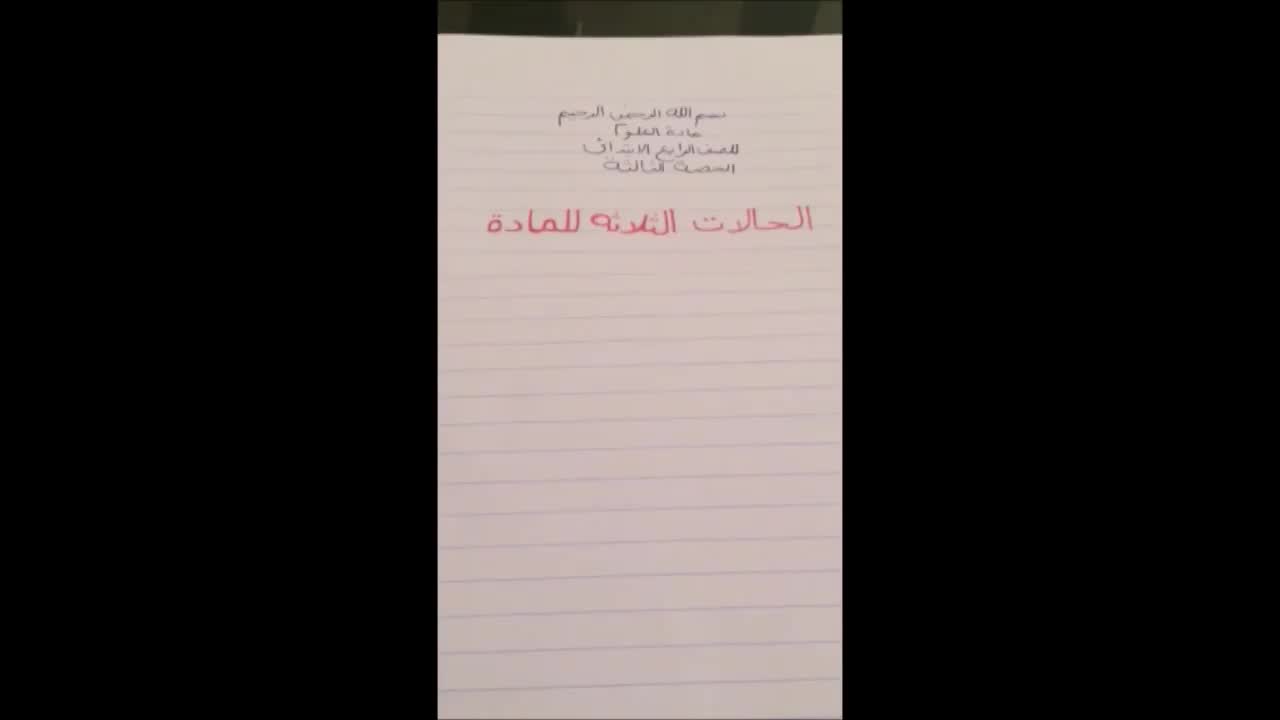 بسم الله الرحمن الرحيم
مادة العلوم
للصف الرابع الابتدائي
الحصة الثالثة
الحالات الثلاثه للمادة